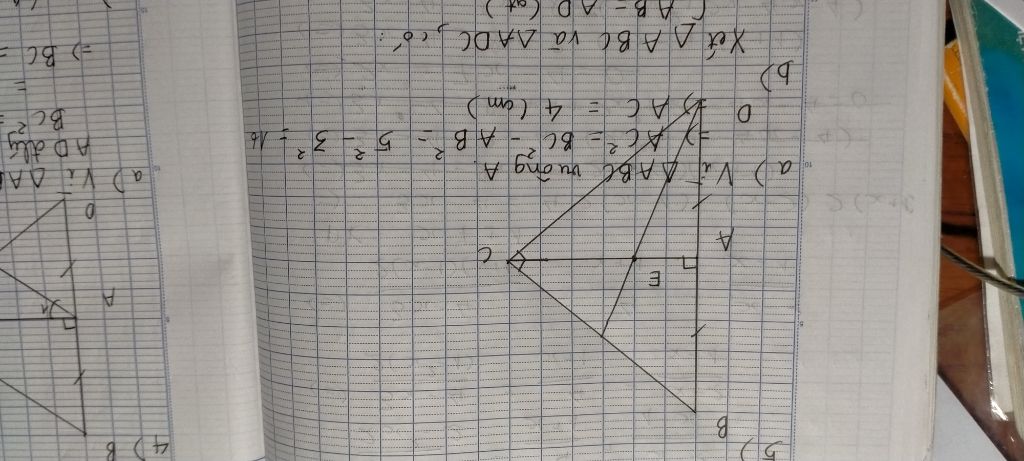 5)
B
E
A
C
D
a) Vì △ABC vuông A
=> AC² = BC² - AB² = 5² - 3² = 16
=> AC = 4 (cm)
b)
Xét △ABC và △ADC, có:
( AB = AD (gt)
4) B
A
1
D
a) Vì △A
AD
BC²
=
=> BC =